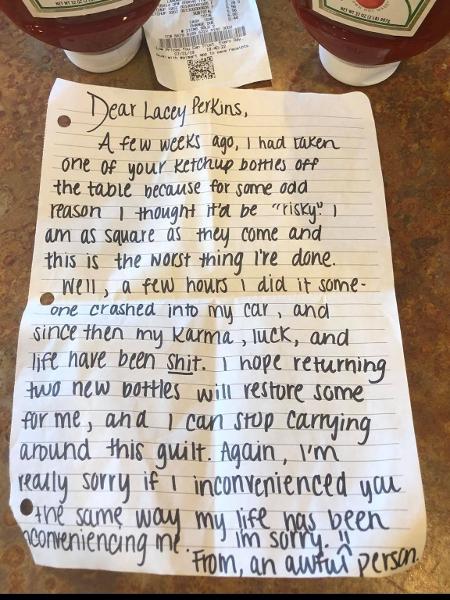 NET WT 32 OZ (2 LB) 907g
NET WT 32 OZ (2 LB) 907g
Dear Lacey Perkins,
A few weeks ago, I had taken
one of your ketchup bottles off
the table because for some odd
reason I thought it'd be "risky." I
am as square as they come and
this is the worst thing I've done.
Well, a few hours I did it some-
one crashed into my car, and
since then my karma, luck, and
life have been shit. I hope returning
two new bottles will restore some
for me, and I can stop carrying
around this guilt. Again, I'm
really sorry if I inconvenienced you
the same way my life has been
inconveniencing me. I'm sorry. !!
From, an awful person.